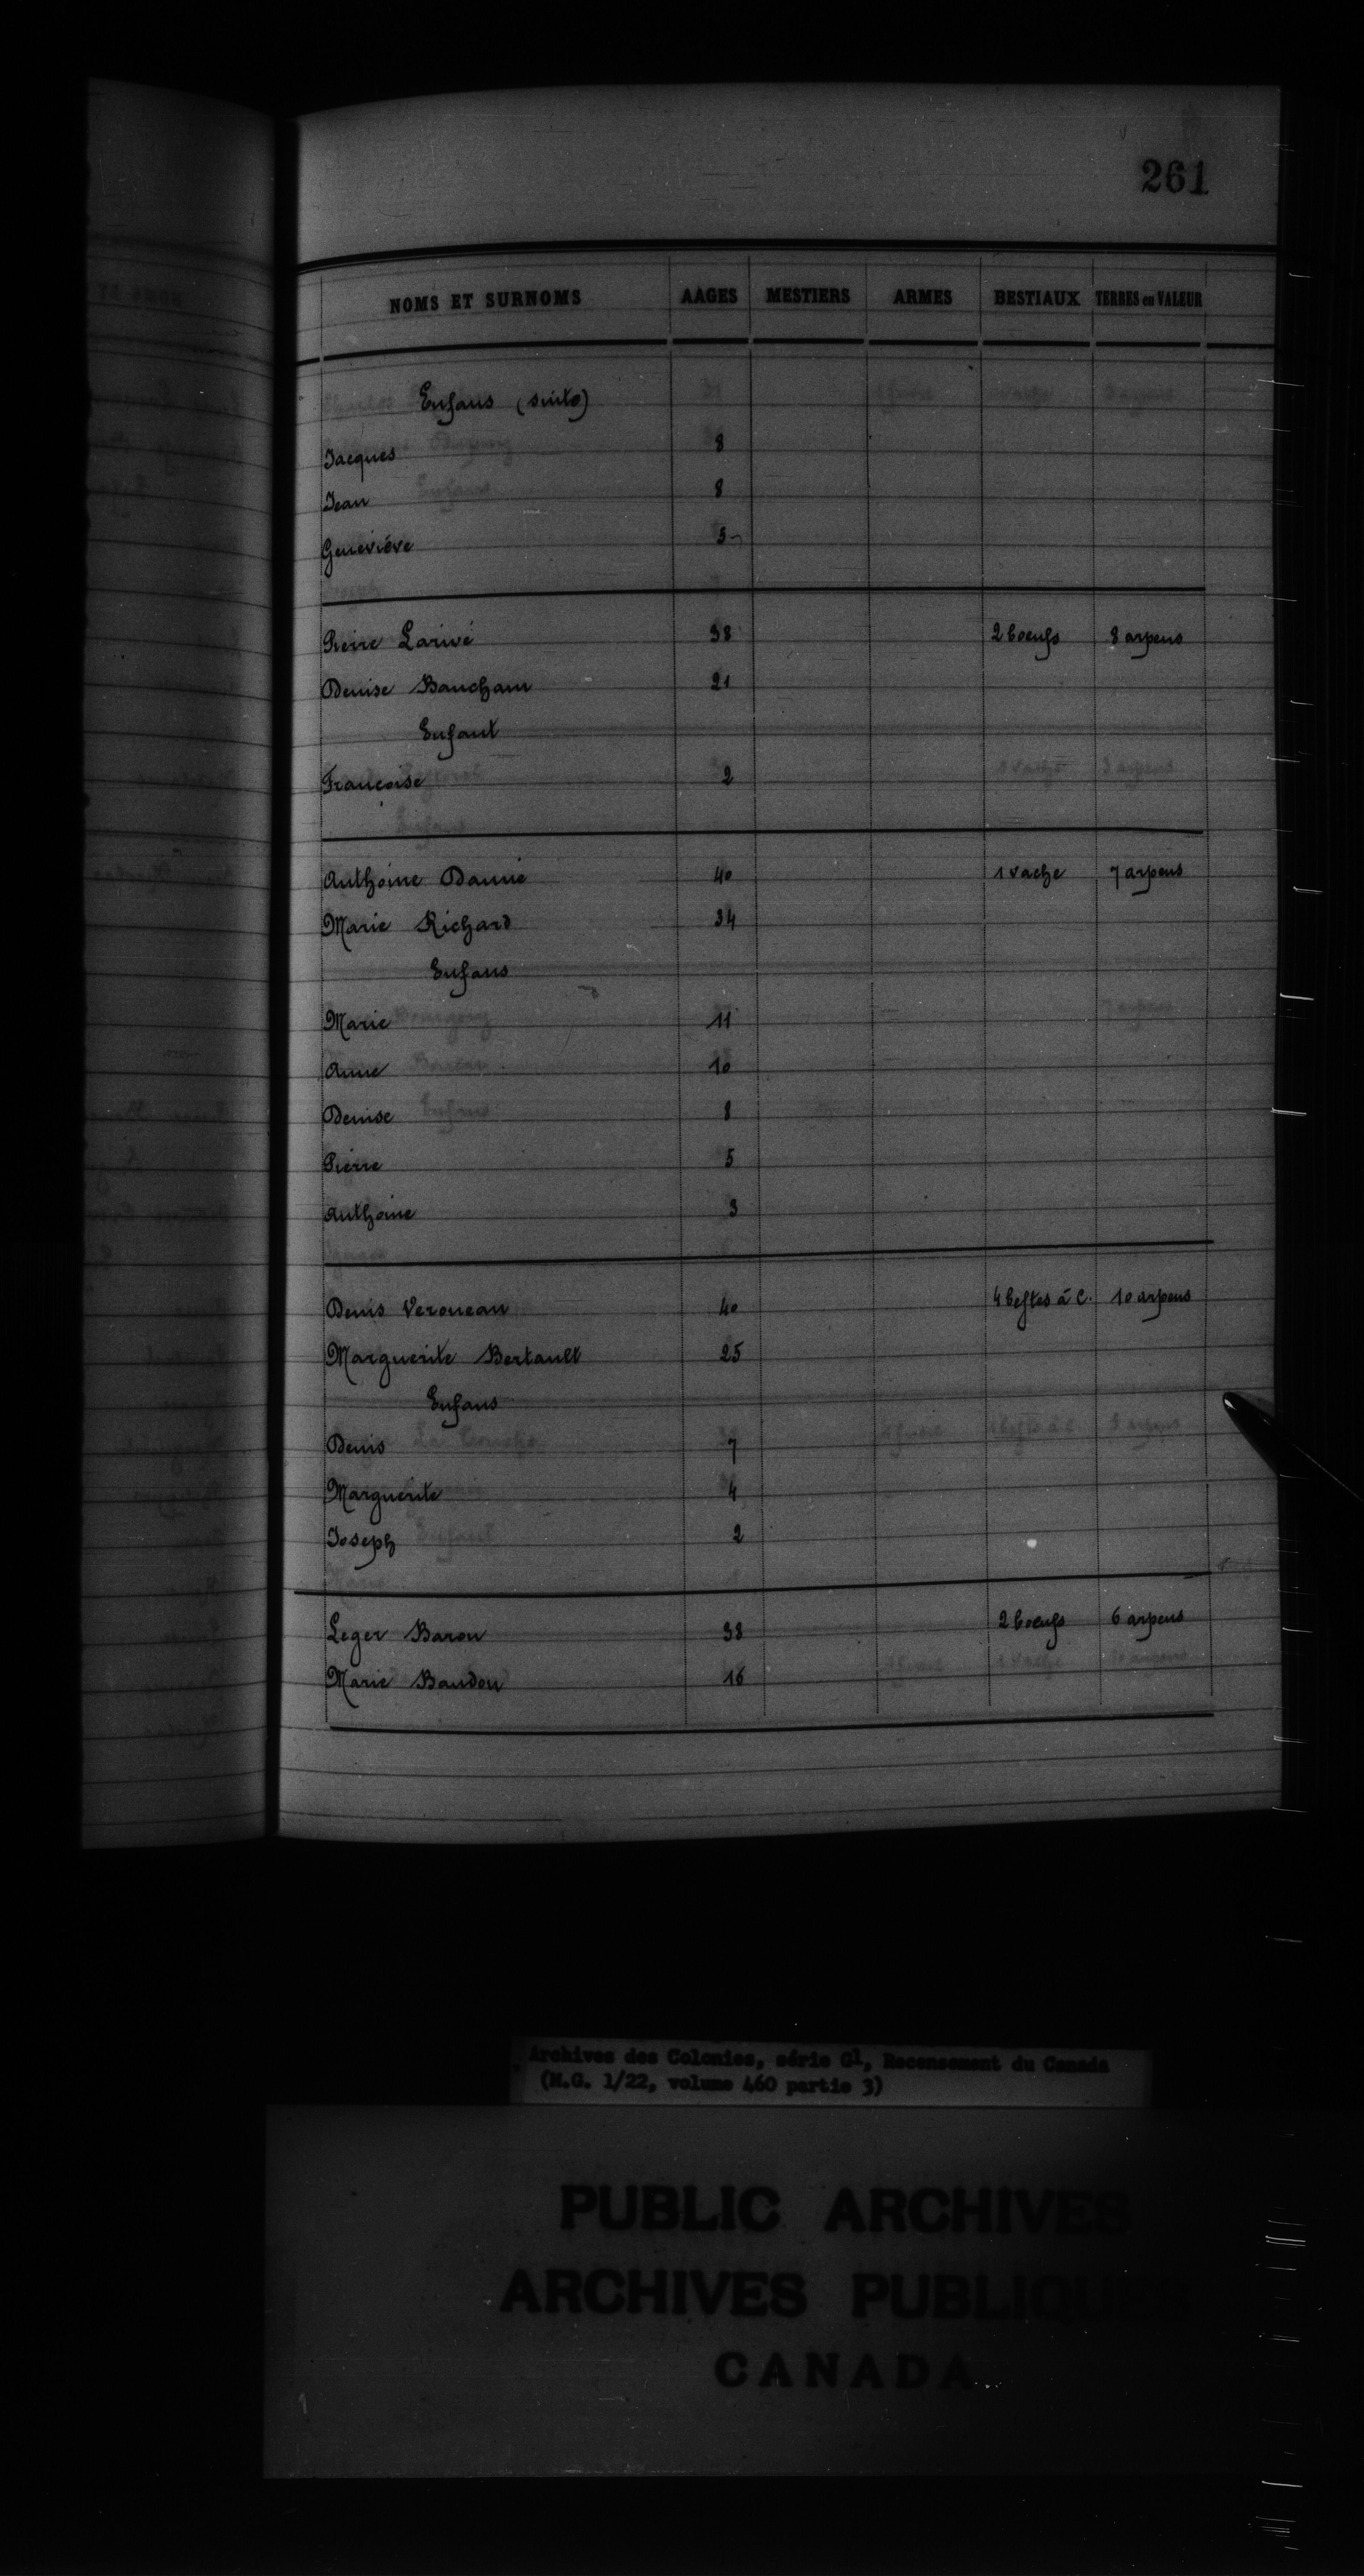 261
NOMS ET SURNOMS AAGES MESTIERS ARMES BESTIAUX TERRES en VALEUR
Enfans (suite)
Jacques 8
Jean 8
Geneviéve 5
Pierre Larivé 38 2 boeufs 8 arpens
Denise Baucham 21
Enfant
Francoise 2
Anthoine Daunié 40 1 vache 7 arpens
Marie Richard 34
Enfans
Marie 11
Anne 10
Denise 8
Pierre 5
Anthoine 3
Denis Veroneau 40 4 bestes à C. 10 arpens
Marguerite Bertault 25
Enfans
Denis 7
Marguerite 4
Joseph 2
Leger Baron 38 2 boeufs 6 arpens
Marie Baudon 16
Archives des Colonies, série G1, Recensement du Canada
(M.G. 1/22, volume 460 partie 3)
PUBLIC ARCHIVES
ARCHIVES PUBLIQUES
CANADA